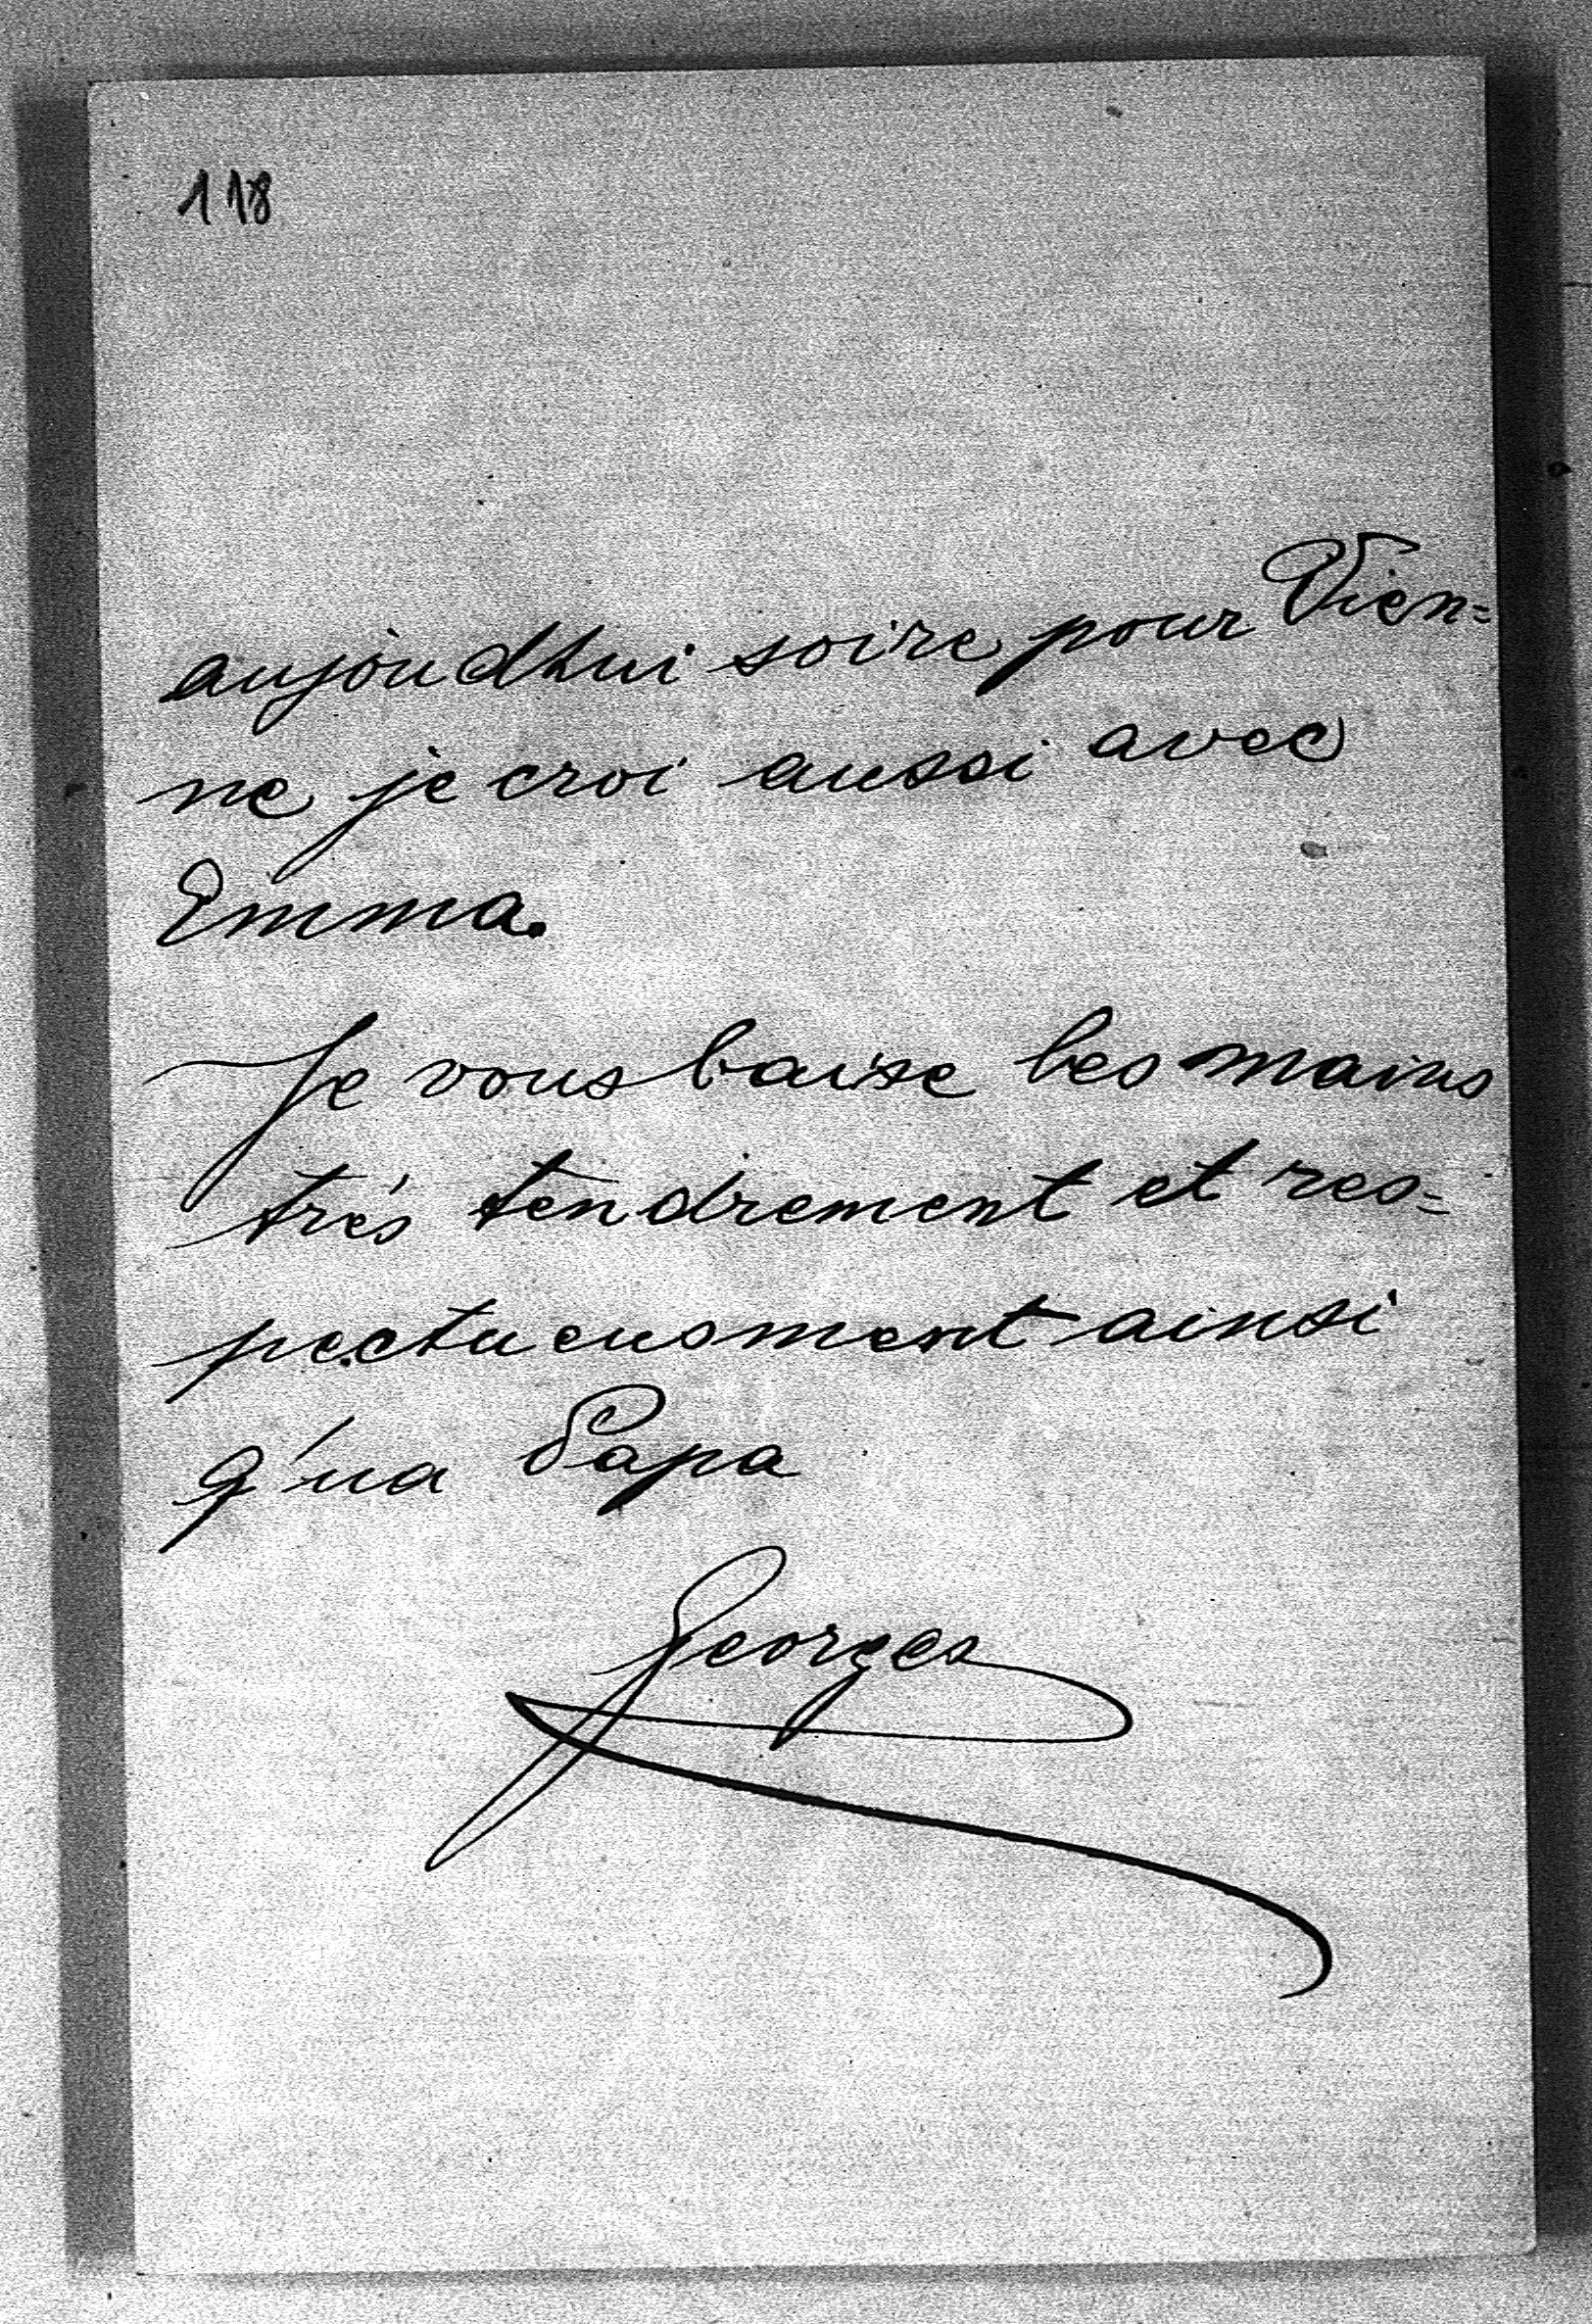 118
aujoudhui soire pour Vien=
ne je croi aussi avec
Emma.
Je vous baise les mains
trés tendrement et res=
pectueusment ainsi
q'ua Papa
Georges